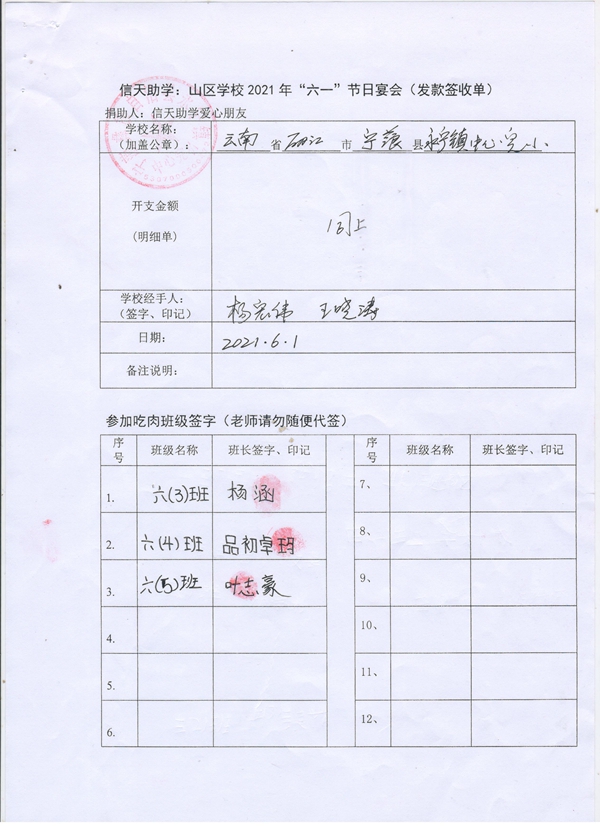 信天助学：山区学校2021年“六一”节日宴会（发款签收单）
捐助人：信天助学爱心朋友
学校名称：
（加盖公章）： 云南省丽江市宁蒗县永宁镇中心完小
开支金额
(明细单)
同上
学校经手人：
（签字、印记） 杨宏伟 王晓涛
日期： 2021.6.1
备注说明：
参加吃肉班级签字（老师请勿随便代签）
序号 班级名称 班长签字、印记 序号 班级名称 班长签字、印记
1. 六(3)班 杨涵 7、
2. 六(4)班 品初卓玛 8、
3. 六(5)班 叶志豪 9、
4. 10、
5. 11、
6. 12、